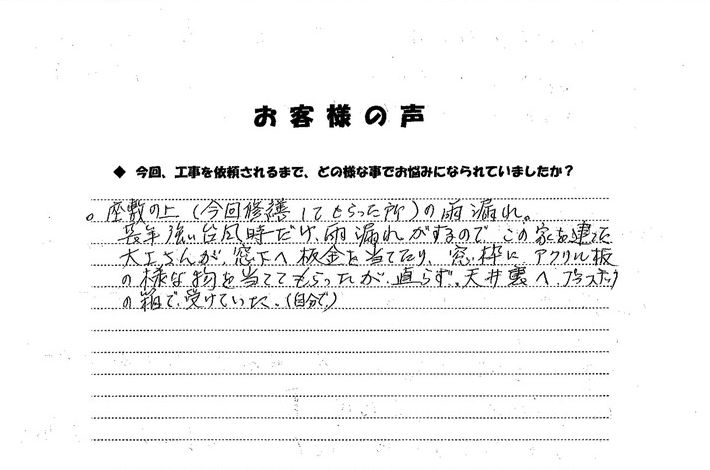 お客様の声
◆ 今回、工事を依頼されるまで、どの様な事でお悩みになられていましたか？
。座敷の上（今回修繕してもらった所）の雨漏れ。
長年強い台風時だけ、雨漏れがするので、この家を建てた
大工さんが、窓下へ板金を当てたり、窓枠にアクリル板
の様な物を当ててもらったが、直らず。天井裏へ、プラスチック
の箱で、受けていた。（自分で）